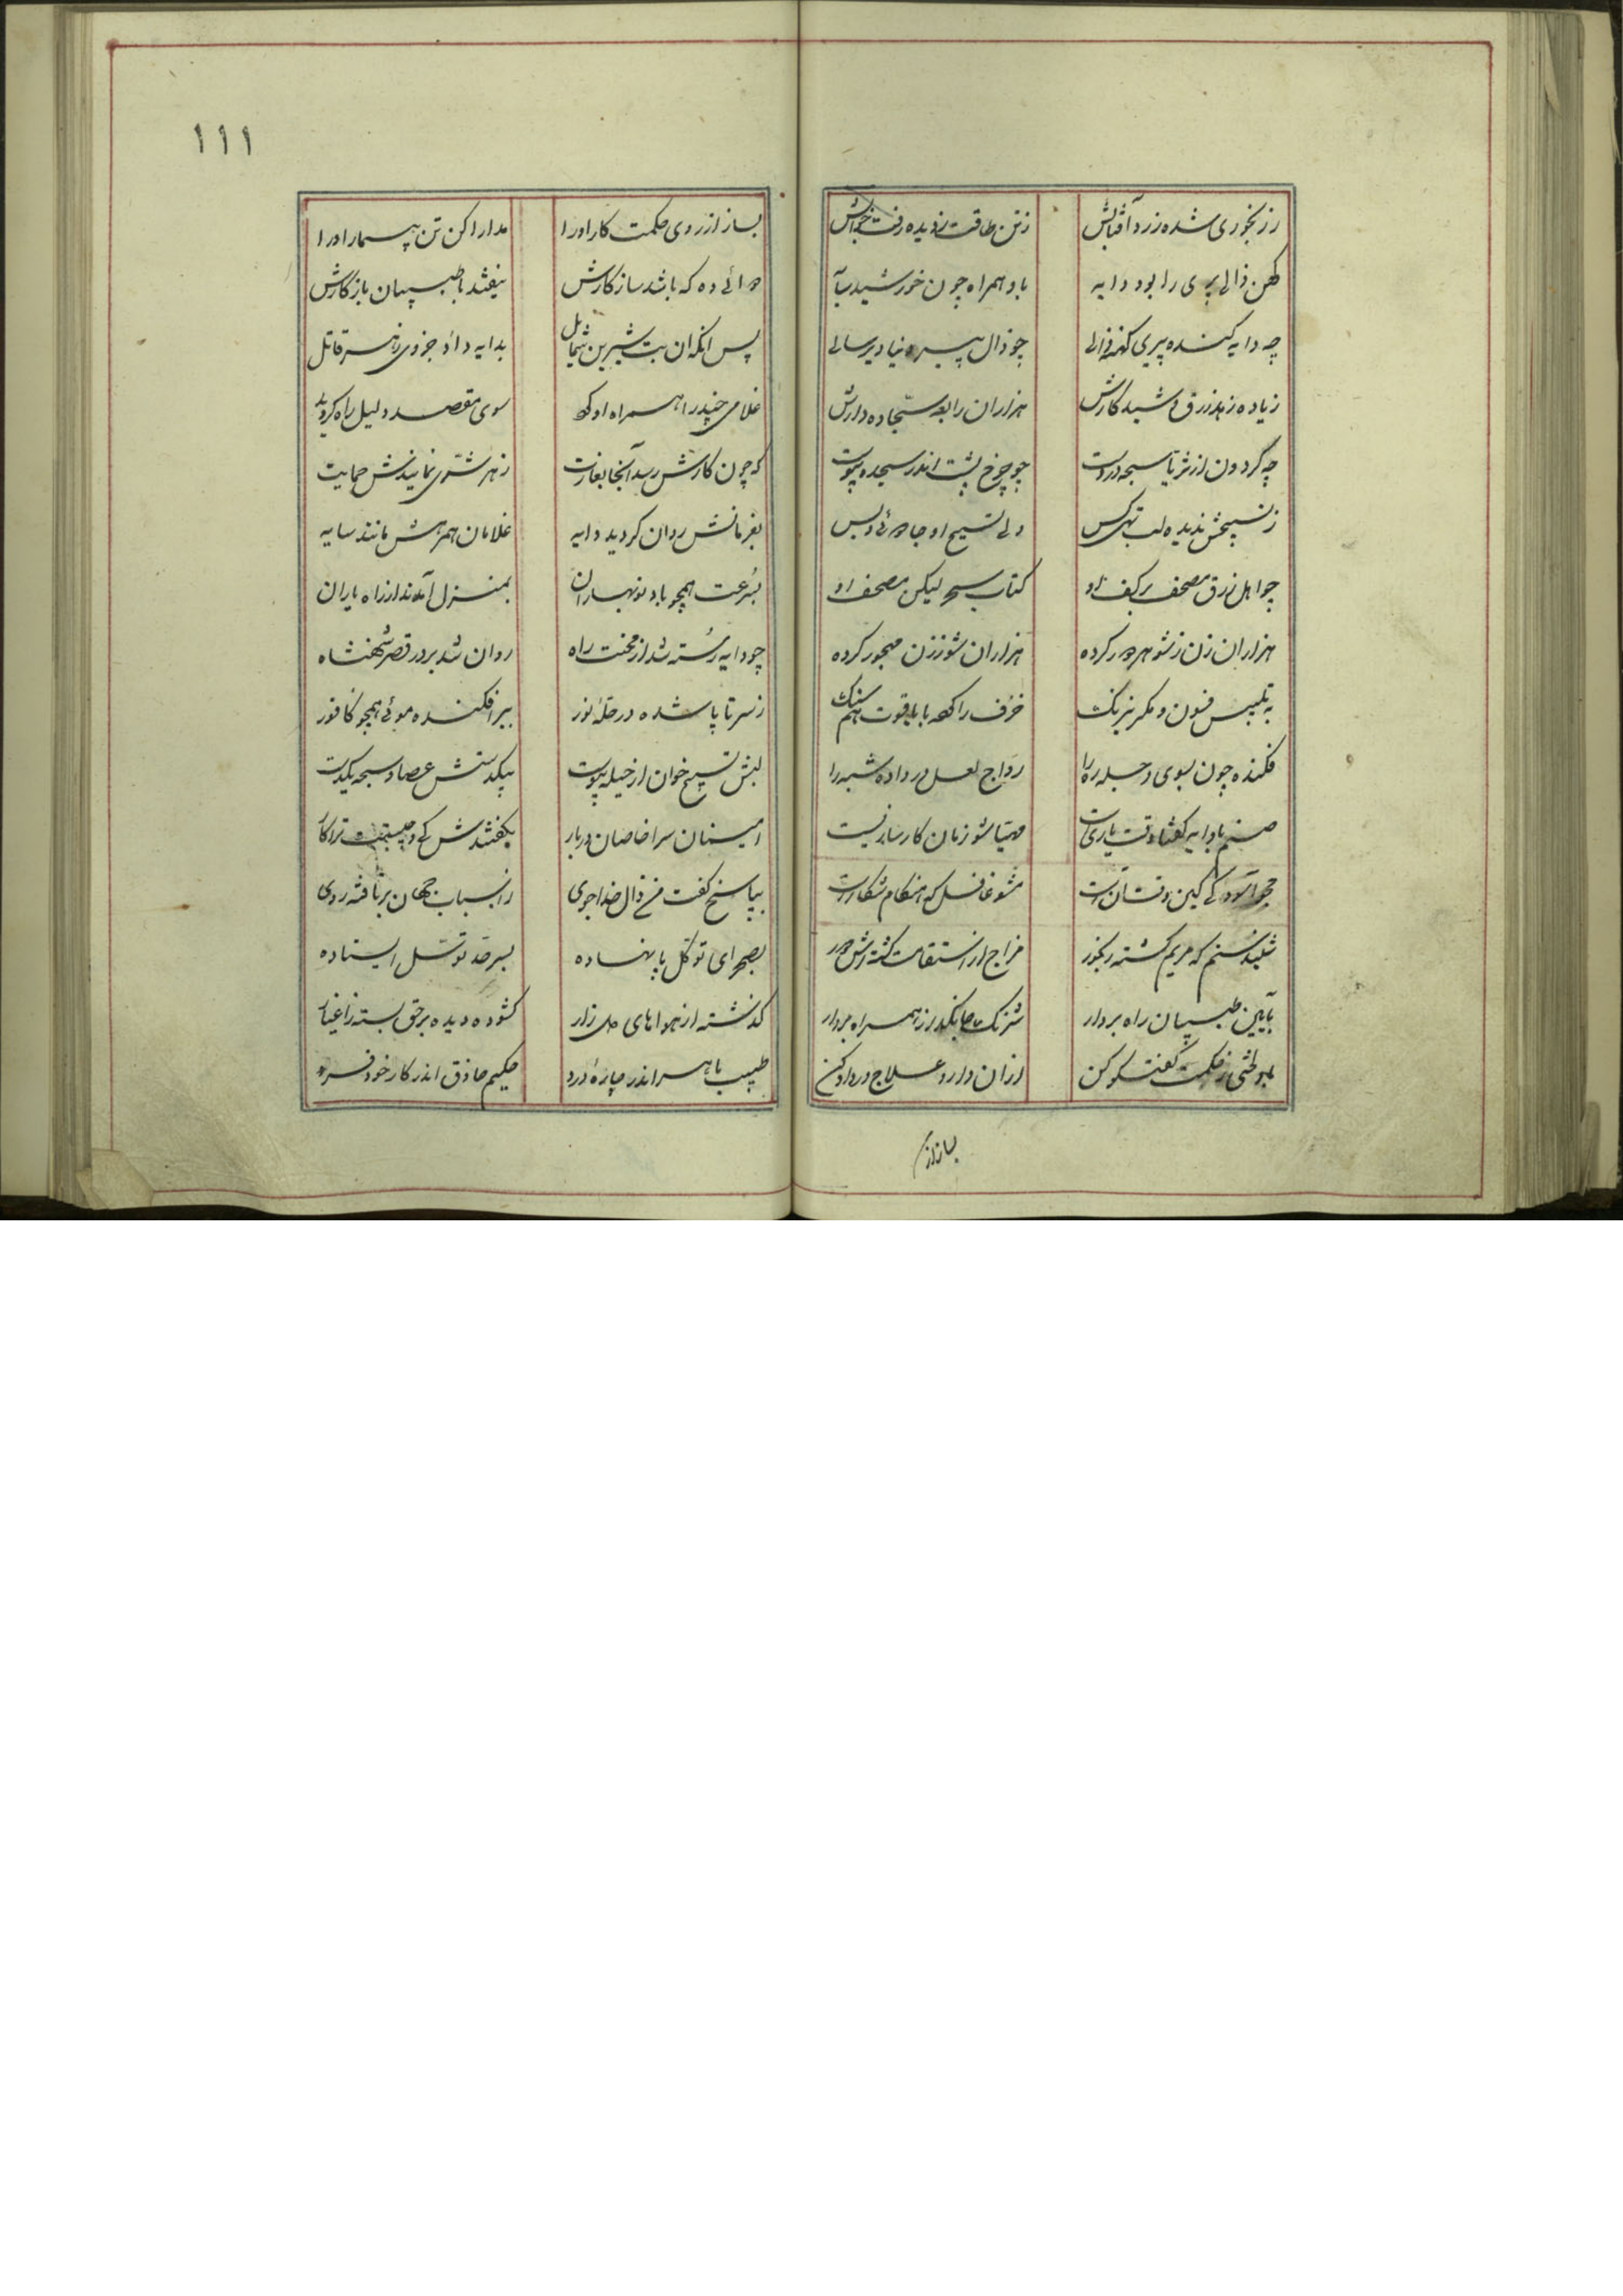 ز رنجوری شده زرد آفتابش ز تن طاقت ز دیده رفت خوابش
کهن زالی پری را بود دایه باو همراه چون خورشید سایه
چه دایه کنده پیری کهنه زالی چو زال پیره دنیا دیرسالی
زیاده زهد زرق و شید کارش هزاران رابعه سجاده دارش
چه گردون از ثریا سبحه در دست چو چرخ پشت اندر سجده پیوست
ز تسبیحش ندیده لب تهی کس ولی تسبیح او جادوئی و بس
چو اهل زرق مصحف بر کف او کتاب سحر لیکن مصحف او
هزاران زن ز شوهر دور کرده هزاران شو ز زن مهجور کرده
به تلبیس و فسون و مکر و نیرنگ خزف را کرده با یاقوت هم سنگ
فکنده چون بسوی حیله ره را رواج لعل و در داده شبه را
صنم با دایه گفتا وقت یاریست مهیا شو زمان کارسازیست
مشو غافل که هنگام شکارست
شنیدستم که مریم گشته رنجور مزاج از استقامت گشته اش دور
بآیین طبیبان راه بردار شرنگ جانگزا همراه بردار
بهر بخشی ز حکمت گفتگو کن ازان دارو علاج درد او کن
بساز از
۱۱۱
بساز از روی حکمت کار او را مدارا کن تن بیمار او را
دوائی ده که باشد سازگارش نیفتد با طبیبان باز کارش
پس آنکه آن بت شیرین شمایل بدایه داد جزوی زهر قاتل
غلامی چند را همراه او کرد سوی مقصد دلیل راه
که چون کارش رسد آنجا بغایت ز هر شری نمایندش حمایت
بفرمانش روان گردید دایه غلامان همرهش مانند سایه
بسرعت همچو باد نوبهاران بمنزل آمدند از راه یاران
چو دایه رسته شد از محنت راه روان شد بر در قصر شهنشاه
ز سر تا پا شده در حله نور ببر افکنده موئی همچو کافور
لبش تسبیح خوان از حیله پیوست بیکدستش عصا و سبحه یکدست
امینان سرا خاصان دربار بگفتندش کئی و چیست ترا کار
بپاسخ گفت من زال خداجوی ز اسباب جهان بر تافته روی
بصحرای توکل پا نهاده بسرحد توسل ایستاده
گذشته از هواهای دل زار گشوده دیده بر حق بسته ز اغیار
طبیب ماهر اندر چاره درد حکیم حاذق اندر کار خود فرد